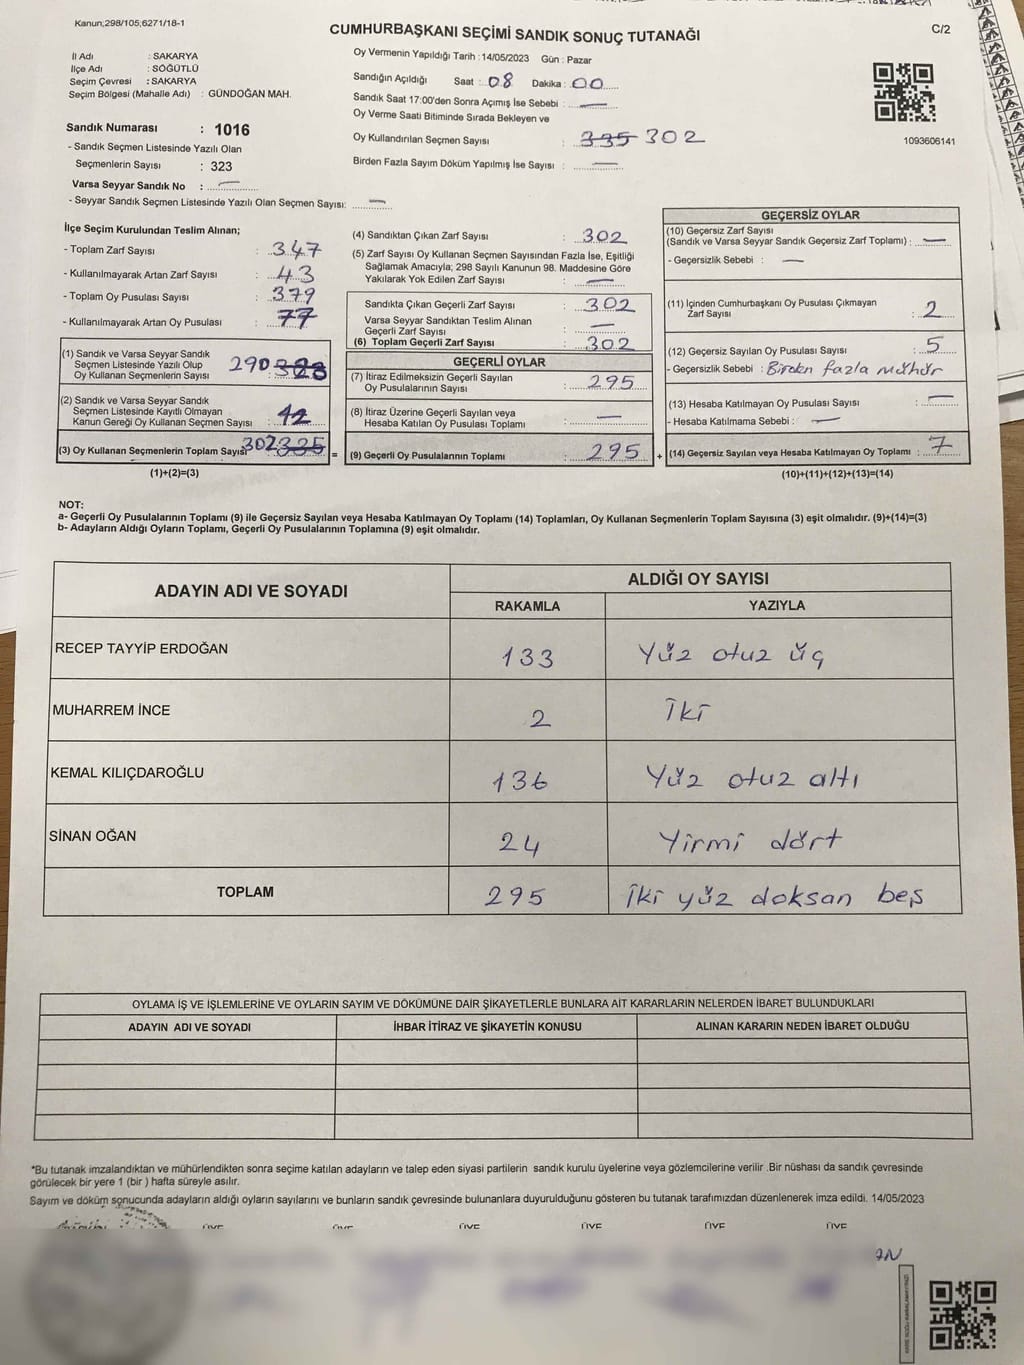 Kanun;298/105,6271/18-1
CUMHURBAŞKANI SEÇİMİ SANDIK SONUÇ TUTANAĞI
C/2
İl Adı : SAKARYA
İlçe Adı : SÖĞÜTLÜ
Seçim Çevresi : SAKARYA
Seçim Bölgesi (Mahalle Adı) : GÜNDOĞAN MAH.
Sandık Numarası : 1016
- Sandık Seçmen Listesinde Yazılı Olan
Seçmenlerin Sayısı : 323
Varsa Seyyar Sandık No : —
- Seyyar Sandık Seçmen Listesinde Yazılı Olan Seçmen Sayısı: —
Oy Vermenin Yapıldığı Tarih : 14/05/2023 Gün : Pazar
Sandığın Açıldığı Saat : 08 Dakika : 00
Sandık Saat 17:00'den Sonra Açımış İse Sebebi : —
Oy Verme Saati Bitiminde Sırada Bekleyen ve
Oy Kullandırılan Seçmen Sayısı : 335 302
Birden Fazla Sayım Döküm Yapılmış İse Sayısı : —
1093606141
İlçe Seçim Kurulundan Teslim Alınan;
- Toplam Zarf Sayısı : 347
- Kullanılmayarak Artan Zarf Sayısı : 43
- Toplam Oy Pusulası Sayısı : 379
- Kullanılmayarak Artan Oy Pusulası : 77
(1) Sandık ve Varsa Seyyar Sandık
Seçmen Listesinde Yazılı Olup
Oy Kullanan Seçmenlerin Sayısı : 290 323
(2) Sandık ve Varsa Seyyar Sandık
Seçmen Listesinde Kayıtlı Olmayan
Kanun Gereği Oy Kullanan Seçmen Sayısı : 12
(3) Oy Kullanan Seçmenlerin Toplam Sayısı 302 335 =
(1)+(2)=(3)
(4) Sandıktan Çıkan Zarf Sayısı : 302
(5) Zarf Sayısı Oy Kullanan Seçmen Sayısından Fazla İse, Eşitliği
Sağlamak Amacıyla; 298 Sayılı Kanunun 98. Maddesine Göre
Yakılarak Yok Edilen Zarf Sayısı : —
Sandıkta Çıkan Geçerli Zarf Sayısı : 302
Varsa Seyyar Sandıktan Teslim Alınan
Geçerli Zarf Sayısı : —
(6) Toplam Geçerli Zarf Sayısı : 302
GEÇERLİ OYLAR
(7) İtiraz Edilmeksizin Geçerli Sayılan
Oy Pusulalarının Sayısı : 295
(8) İtiraz Üzerine Geçerli Sayılan veya
Hesaba Katılan Oy Pusulası Toplamı : —
(9) Geçerli Oy Pusulalarının Toplamı : 295 +
GEÇERSİZ OYLAR
(10) Geçersiz Zarf Sayısı
(Sandık ve Varsa Seyyar Sandık Geçersiz Zarf Toplamı) : —
- Geçersizlik Sebebi : —
(11) İçinden Cumhurbaşkanı Oy Pusulası Çıkmayan
Zarf Sayısı : 2
(12) Geçersiz Sayılan Oy Pusulası Sayısı : 5
- Geçersizlik Sebebi : Birden fazla mühür
(13) Hesaba Katılmayan Oy Pusulası Sayısı : —
- Hesaba Katılmama Sebebi : —
(14) Geçersiz Sayılan veya Hesaba Katılmayan Oy Toplamı : 7
(10)+(11)+(12)+(13)=(14)
NOT:
a- Geçerli Oy Pusulalarının Toplamı (9) ile Geçersiz Sayılan veya Hesaba Katılmayan Oy Toplamı (14) Toplamları, Oy Kullanan Seçmenlerin Toplam Sayısına (3) eşit olmalıdır. (9)+(14)=(3)
b- Adayların Aldığı Oyların Toplamı, Geçerli Oy Pusulalarının Toplamına (9) eşit olmalıdır.
ADAYIN ADI VE SOYADI
ALDIĞI OY SAYISI
RAKAMLA YAZIYLA
RECEP TAYYİP ERDOĞAN 133 Yüz otuz üç
MUHARREM İNCE 2 İki
KEMAL KILIÇDAROĞLU 136 Yüz otuz altı
SİNAN OĞAN 24 Yirmi dört
TOPLAM 295 İki yüz doksan beş
OYLAMA İŞ VE İŞLEMLERİNE VE OYLARIN SAYIM VE DÖKÜMÜNE DAİR ŞİKAYETLERLE BUNLARA AİT KARARLARIN NELERDEN İBARET BULUNDUKLARI
ADAYIN ADI VE SOYADI İHBAR İTİRAZ VE ŞİKAYETİN KONUSU ALINAN KARARIN NEDEN İBARET OLDUĞU
*Bu tutanak imzalandıktan ve mühürlendikten sonra seçime katılan adayların ve talep eden siyasi partilerin sandık kurulu üyelerine veya gözlemcilerine verilir .Bir nüshası da sandık çevresinde
görülecek bir yere 1 (bir ) hafta süreyle asılır.
Sayım ve döküm sonucunda adayların aldığı oyların sayılarını ve bunların sandık çevresinde bulunanlara duyurulduğunu gösteren bu tutanak tarafımızdan düzenlenerek imza edildi. 14/05/2023
ÜYE ÜYE ÜYE ÜYE ÜYE ÜYE